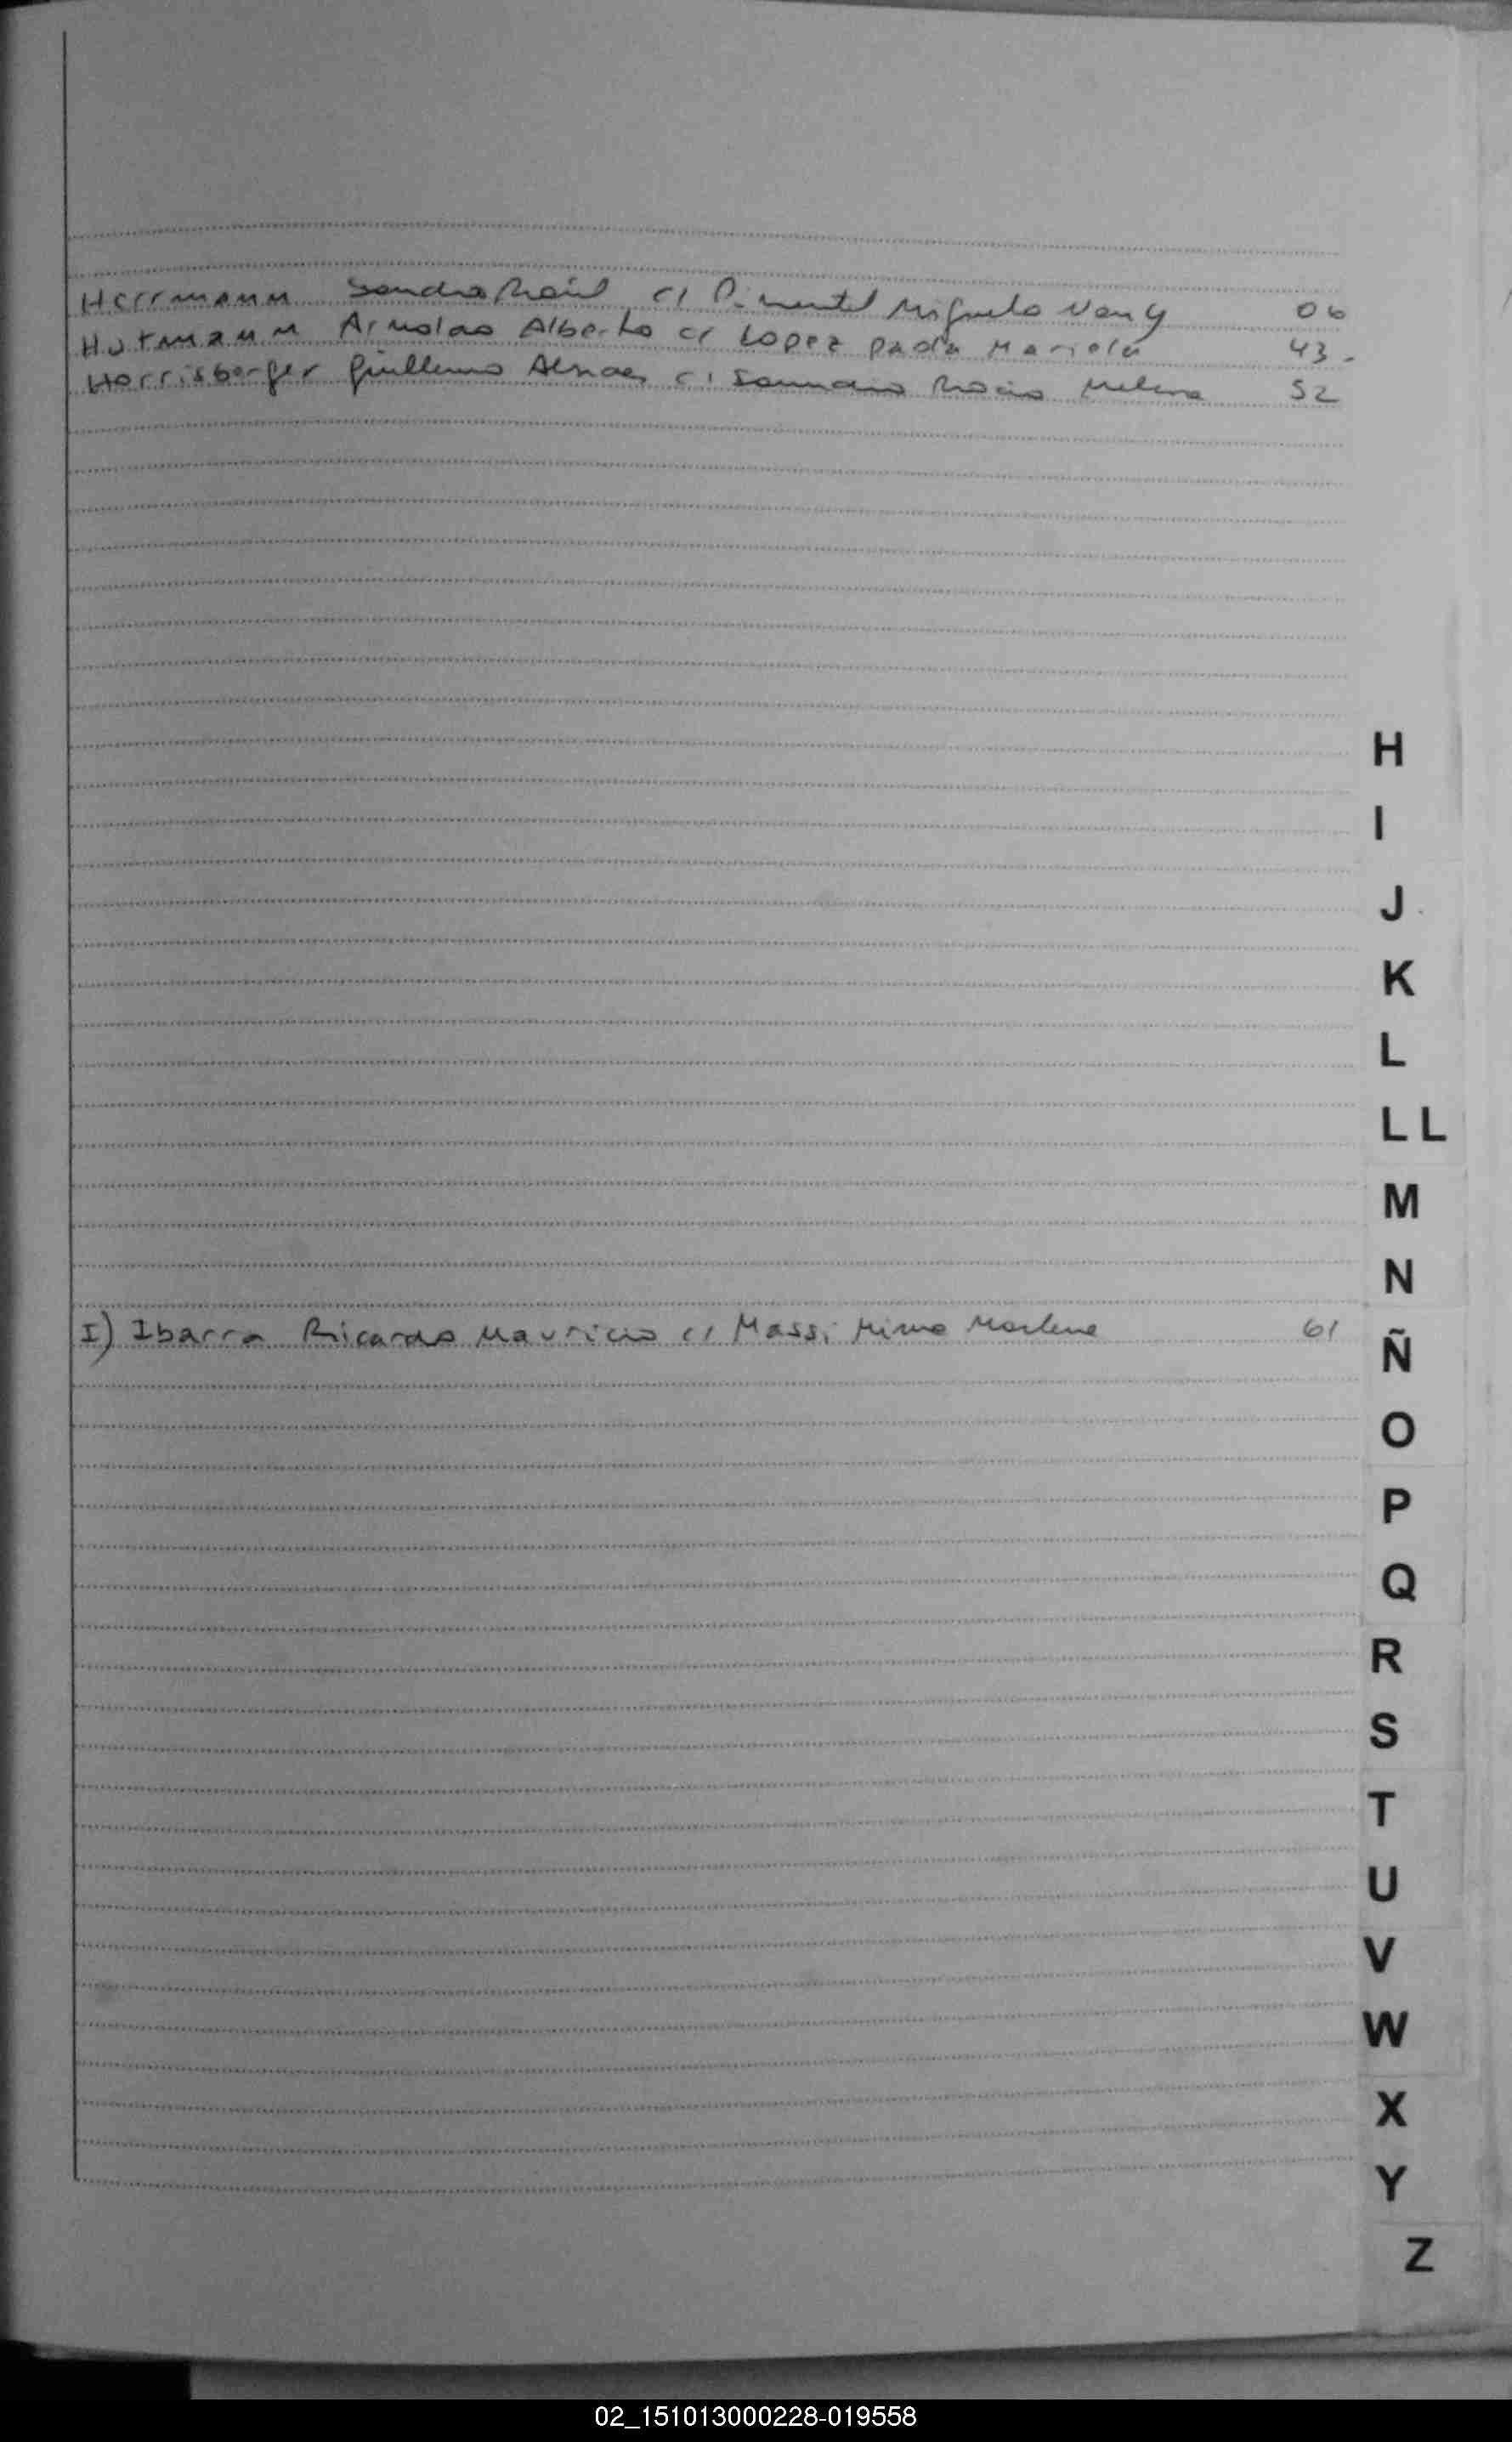 Herrmann Sandro Raúl c/ Pimentel Miguela Nancy 06
Hutmann Arnoldo Alberto c/ Lopez Paola Mariela 43.
Horrisberger Guillermo c/ Rocio Melina 52
H
I
J
K
L
LL
M
N
I) Ibarra Ricardo Mauricio c/ Massi Mirna Marlene 61
Ñ
O
P
Q
R
S
T
U
V
W
X
Y
Z
02_151013000228-019558